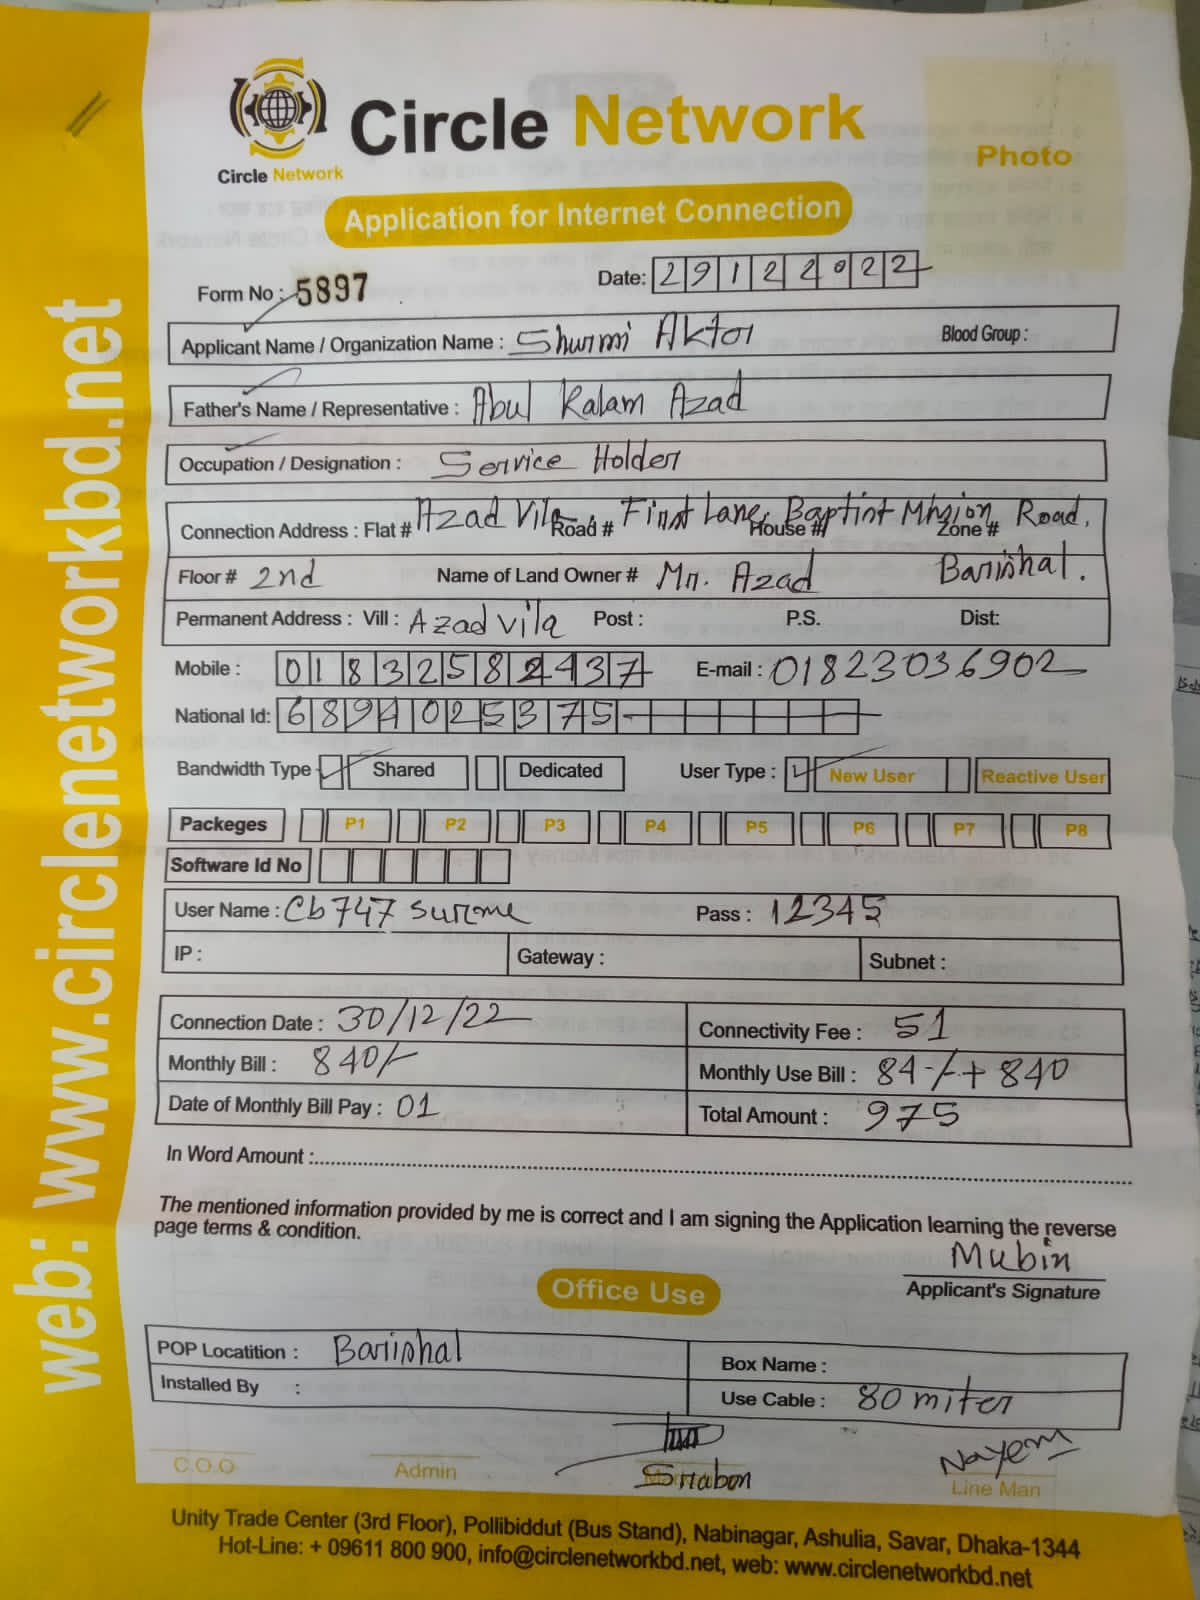 Circle Network
Circle Network
Photo
Application for Internet Connection
Form No : 5897
Date: 29122022
Applicant Name / Organization Name : Shurmi Aktor
Blood Group :
Father's Name / Representative : Abul Kalam Azad
Occupation / Designation : Service Holder
Connection Address : Flat # Azad Vila, Road # First Lane, House # Baptist Mission Zone # Road,
Floor # 2nd Name of Land Owner # Mr. Azad Barishal.
Permanent Address : Vill : Azad vila Post : P.S. Dist:
Mobile : 01832582437 E-mail : 01823036902
National Id: 6894025375
Bandwidth Type Shared Dedicated User Type : New User Reactive User
Packeges P1 P2 P3 P4 P5 P6 P7 P8
Software Id No
User Name : Cb747 surme Pass : 12345
IP : Gateway : Subnet :
Connection Date : 30/12/22 Connectivity Fee : 51
Monthly Bill : 840/- Monthly Use Bill : 84-/-+ 840
Date of Monthly Bill Pay : 01 Total Amount : 975
In Word Amount :
The mentioned information provided by me is correct and I am signing the Application learning the reverse
page terms & condition.
Mubin
Applicant's Signature
Office Use
POP Locatition : Barishal Box Name :
Installed By : Use Cable : 80 miter
Srabon Nayem
C.O.O Admin Line Man
Unity Trade Center (3rd Floor), Pollibiddut (Bus Stand), Nabinagar, Ashulia, Savar, Dhaka-1344
Hot-Line: + 09611 800 900, info@circlenetworkbd.net, web: www.circlenetworkbd.net
web: www.circlenetworkbd.net